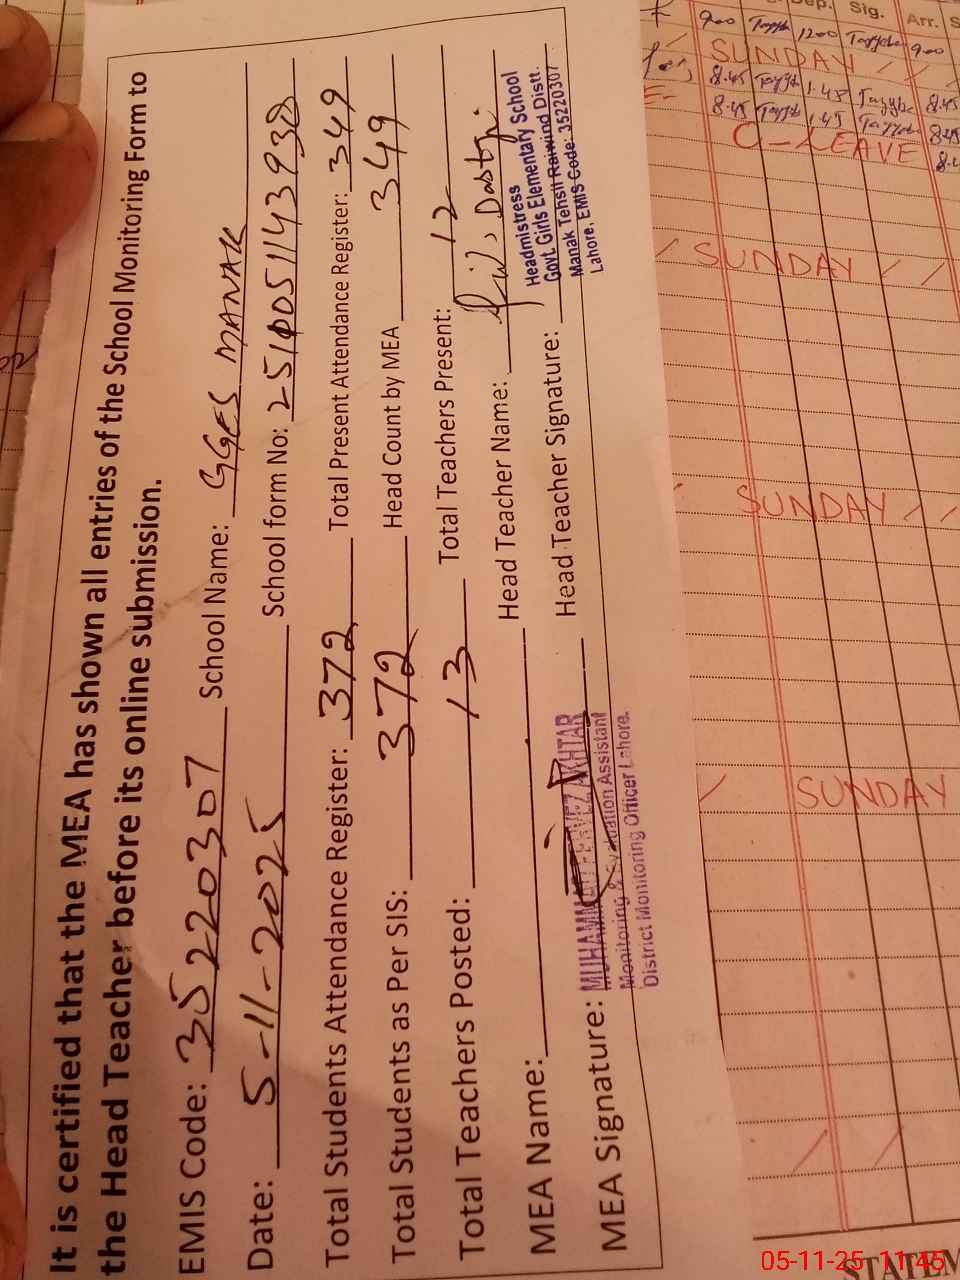 It is certified that the MEA has shown all entries of the School Monitoring Form to
the Head Teacher before its online submission.
EMIS Code: 35220307 School Name: GGES MANAK
Date: 5-11-2025 School form No: 2510051143938
Total Students Attendance Register: 372 Total Present Attendance Register: 349
Total Students as Per SIS: 372 Head Count by MEA 349
Total Teachers Posted: 13 Total Teachers Present: 12
MEA Name: Head Teacher Name:
MEA Signature: Head Teacher Signature:
MUHAMMAD PERVEZ AKHTAR
Monitoring & Evaluation Assistant
District Monitoring Officer Lahore.
Headmistress
Govt. Girls Elementary School
Manak Tehsil Raiwind Distt.
Lahore, EMIS Code: 35220307
Dep. Sig. Arr.
9:00 1200 9:00
SUNDAY
8.45 1.45 8.45
8.45 1.45 8.45
C-LEAVE
SUNDAY
SUNDAY
SUNDAY
05-11-25 11:45